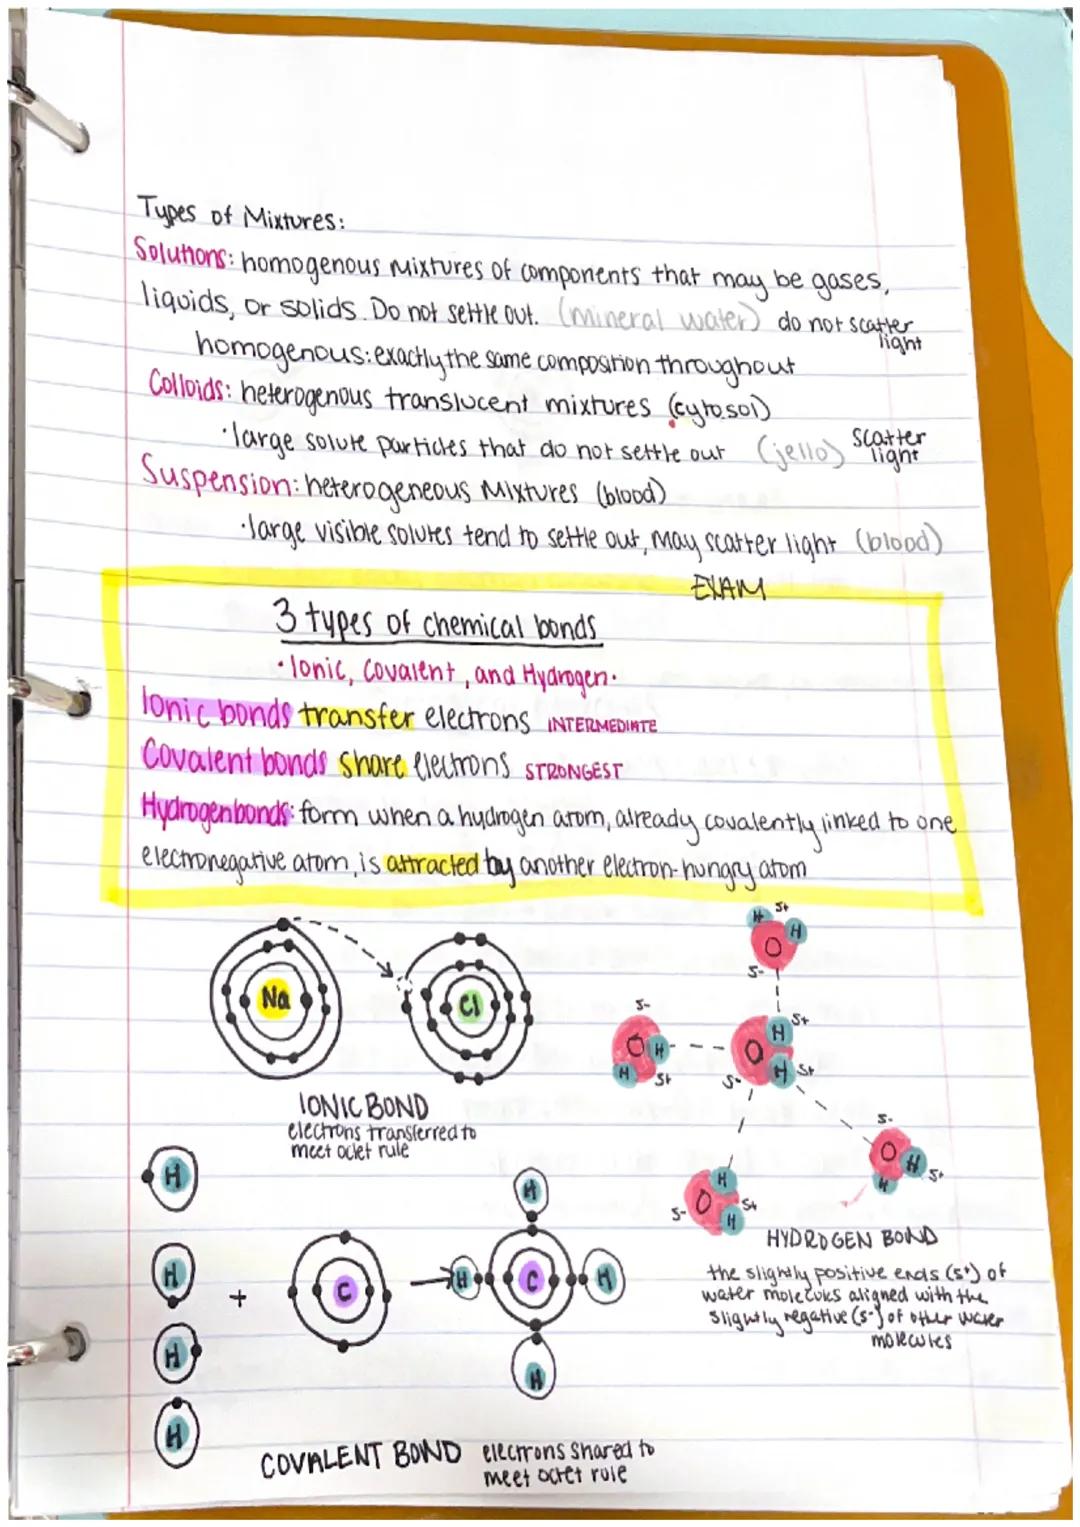 Types of Mixtures:
Solutions: homogenous mixtures of components that may be gases,
liquids, or solids. Do not settle out. (mineral water) do not scatter
light
homogenous: exactly the same composition throughout
Colloids: heterogenous translucent mixtures (cytosol)
·large solute particles that do not settle out (jello) scatter
light
Suspension: heterogeneous Mixtures (blood)
·large visible solutes tend to settle out, may scatter light (blood)
EXAM
3 types of chemical bonds
·Ionic, Covalent, and Hydrogen·
Ionic bonds transfer electrons INTERMEDIATE
Covalent bonds share electrons STRONGEST
Hydrogen bonds: form when a hydrogen atom, already covalently linked to one
electronegative atom, is attracted by another electron-hungry atom
Na
Cl
IONIC BOND
electrons transferred to
meet octet rule
H δ+
H
O
δ-
δ-
O H
H δ+
H δ+
O
δ- H δ+
δ-
O H δ+
H
H
δ- O δ+
H
HYDROGEN BOND
the slightly positive ends (δ+) of
water molecules aligned with the
slightly negative (δ-) of other water
molecules
H
H
H
H
+
C
H
H C H
H
COVALENT BOND electrons shared to
meet octet rule